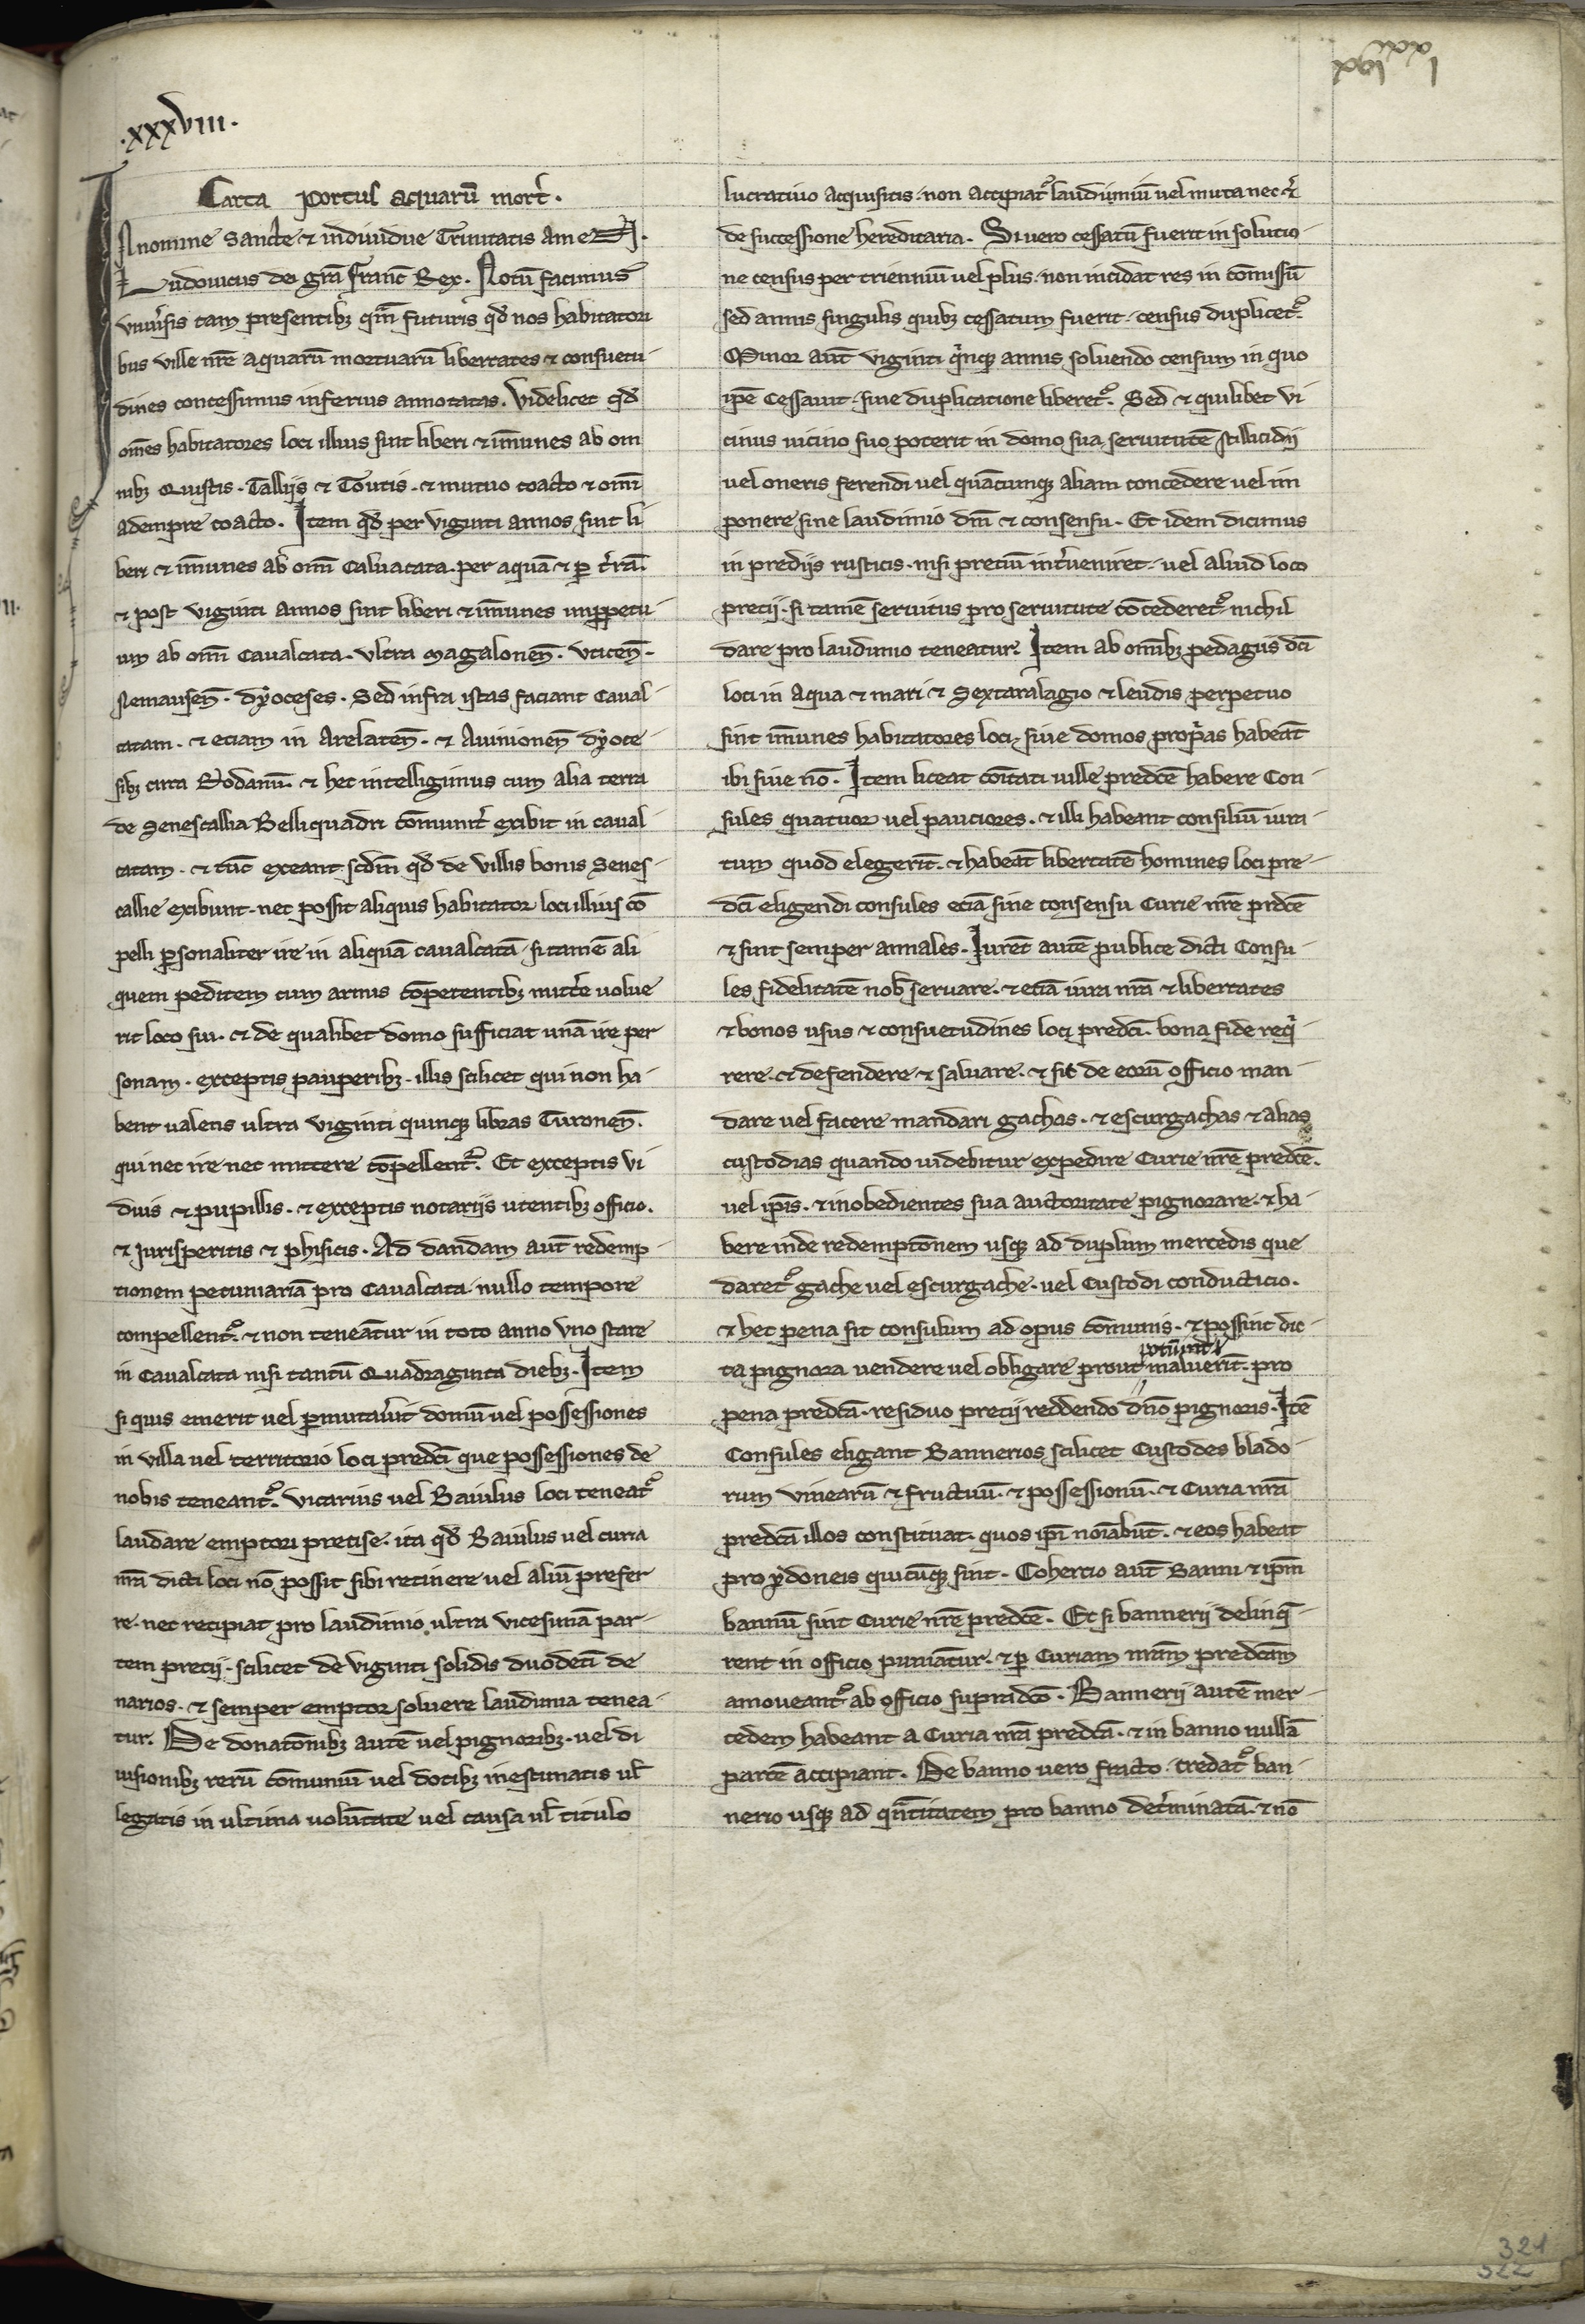 .xxxviii.
Carta portus aquarū mort̄.
In nomine Sancte ⁊ indiuidue Trinitatis amen.
Ludouicus dei grā Franc̄ Rex. Notū facimus
vniuͥsis tam presentibꝫ qm̄ futuris qd̓ nos habitatori
bus ville nr̄e aquarū mortuarū libertates ⁊ consuetu-
dines concessimus inferius annotatas. Videlicet qd̓
om̄es habitatores loci illius sint liberi ⁊ īmunes ab om
nibꝫ Quistis. Talliis ⁊ Toutis. ⁊ mutuo coacto ⁊ om̄i
adempre coacto. Item qd̓ per viginti annos sint li
beri ⁊ īmunes ab om̄i Caluacata. per aquā ⁊ ꝑ t̓rā.
⁊ post viginti annos sint liberi ⁊ īmunes inꝑpetu-
um ab om̄i Caualcata. vltra Magalonen̄. vticen̄.
Nemausen̄. dyoceses. Sed infra istas faciant Caual-
catam. ⁊ etiam in Arelaten̄. ⁊ Auinionen̄ dyoce-
sibꝫ circa Rodanū. ⁊ hec intelligimus cum alia terra
de Senescallia Belliquadri cōmunit̓ exibit in caual-
catam. ⁊ tūc exeant scdm̄ qd̓ de villis bonis Senes-
callie exibunt. nec possit aliquis habitator loci illius cō
pelli ꝑsonaliter ire in aliquā caualcatā. si tamē ali
quem peditem cum armis cōpetentibꝫ mitt̓e volue
rit loco sui. ⁊ de qualibet domo sufficiat vnā ire per
sonam. exceptis pauperibꝫ. illis scilicet qui non ha-
bent ualens ultra viginti quinqꝫ libras Turonen̄.
qui nec ire nec mittere cōpellent᷑. Et exceptis vi
duis ⁊ pupillis. ⁊ exceptis notariis utentibꝫ officio.
⁊ Iurisperitis ⁊ phisicis. Ad dandam aut̄ redemp-
tionem pecuniariā pro Caualcata. nullo tempore
compellent᷑. ⁊ non teneātur in toto anno vno stare
in Caualcata nisi tantū Quadraginta diebꝫ. Item
si quis emerit vel ꝑmutau̓it domū vel possessiones
in villa vel territorio loci predc̄i que possessiones de
nobis teneant᷑. vicarius vel Baiulus loci teneat᷑
laudare emptori precise. ita qd̓ Baiulus vel curia
nr̄a dicti loci nō possit sibi retinere vel aliū prefer
re. nec recipiat pro laudimio ultra vicesimā par-
tem precii. scilicet de viginti solidis duodeci de
narios. ⁊ semper emptor soluere laudimia tenea-
tur. De donatōnibꝫ autē vel pignoribꝫ. vel di
uisionibꝫ rerū cōmuniū vel dotibꝫ inestimatis ul̄
legatis in ultima volūtate vel causa ul̄ titulo
lucratiuo acquisitis. non accipiat᷑ laudimiū vel muta nec ⁊
de successione hereditaria. Si vero cessatū fuerit in solutio-
ne census per trienniū vel plus. non incidat res in cōmissū
sed annis singulis quibꝫ cessatum fuerit. census duplicet᷑.
Minor aut̄ viginti qͥnqꝫ annis soluendo censum in quo
ipē cessauit. sine duplicatione liberet᷑. Sed ⁊ quilibet vi
cinus uicino suo poterit in domo sua seruitutē stillicidii
vel oneris ferendi vel quācumqꝫ aliam concedere vel im
ponere sine laudimio dn̄i ⁊ consensu. Et idem dicimus
in prediis rusticis. nisi preciū int̓ueniret. vel aliud loco
precii. si tamē seruitus pro seruitute cōcederet᷑. nichil
dare pro laudimio teneatur. Item ab om̄ibꝫ pedagiis dc̄i
loci in aqua ⁊ mari ⁊ Sextaralagio ⁊ leudis perpetuo
sint īmunes habitatores loci. siue domos propͥas habeāt
ibi siue nō. Item liceat cōitati uille predc̄e habere Con-
sules quatuor vel pauciores. ⁊ illi habeant consiliū iura
tum quod elegerit̄. ⁊ habeāt libertatē homines loci pre-
dc̄i eligendi consules etiā sine consensu Curie nr̄e prdc̄e
⁊ sint semper annales. Iurēt autē publice dicti Consu-
les fidelitatē nob̄ seruare. ⁊ etiā iura nr̄a ⁊ libertates
⁊ bonos usus ⁊ consuetudines loci predc̄i. bona fide reqͥ-
rere. ⁊ defendere ⁊ saluare. ⁊ sit de eorū officio man-
dare vel facere mandari gachas. ⁊ escurgachas ⁊ alias
custodias quando uidebitur expedire Curie nr̄e predc̄e.
vel ipīs. ⁊ inobedientes sua auctoritate pignorare. ⁊ ha-
bere inde redemptōnem usqꝫ ad duplum mercedis que
daret᷑ gache vel escurgache. vel Custodi conducticio.
⁊ hec pena sit consulum ad opus cōmunis. ⁊ possint dic-
ta pignora vendere vel obligare prout maluerīt. pro
pena predc̄a. residuo precii reddendo dn̄o pignoris. Itē
Consules eligant Bannerios scilicet Custodes blado-
rum vinearū ⁊ fructuū. ⁊ possessionū. ⁊ Curia nr̄a
predc̄a illos constituat. quos ipī noīabūt. ⁊ eos habeat
pro ydoneis quicūqꝫ sint. Cohercio aut̄ Banni ⁊ ipm̄
bannū sint Curie nr̄e predc̄e. Et si bannerii delinq̄-
rent in officio puniātur. ⁊ ꝑ Curiam nr̄am predc̄am
amoueant᷑ ab officio supradc̄o. Bannerii autē mer-
cedem habeant a Curia nr̄a predc̄a. ⁊ in banno nullā
partē accipiant. De banno uero fracto. credat᷑ ban-
nerio usqꝫ ad qn̄titatem pro banno det̓minatā. ⁊ nō
321
322